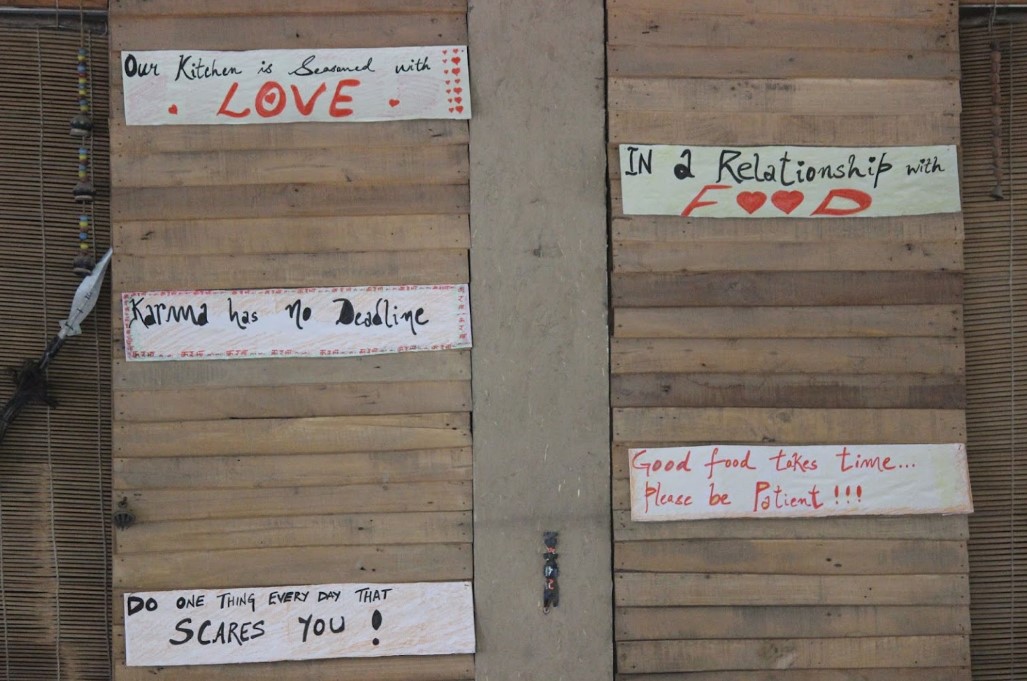 Our Kitchen is Seasoned with
LOVE
Karma has no Deadline
DO ONE THING EVERY DAY THAT
SCARES YOU !
IN a Relationship with
FOOD
Good food takes time...
Please be Patient !!!